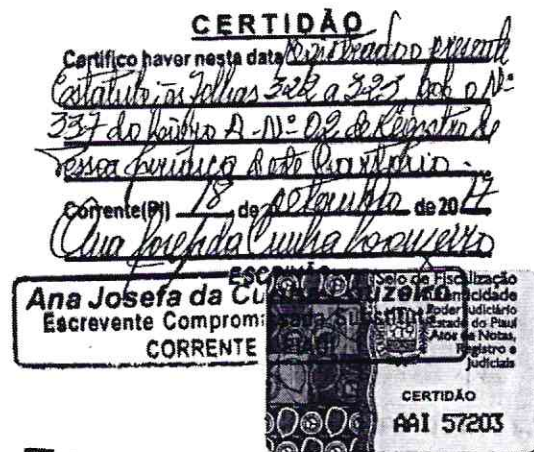 CERTIDÃO
Certifico haver nesta data Registrado o presente
Estatuto, às folhas 322 a 323 sob o Nº
337 do Livro A-Nº 02 de Registro de
Pessoa Jurídica deste Cartório.
Corrente(PI) 18 de setembro de 2017
Ana Josefa da Cunha
ESCRIVÃO
Ana Josefa da
Escrevente
CORRENTE
Selo de Fiscalização
Autenticidade
Poder Judiciário
Estado do Piauí
Atos de Notas,
Registro e
Judiciais
CERTIDÃO
AAI 57203